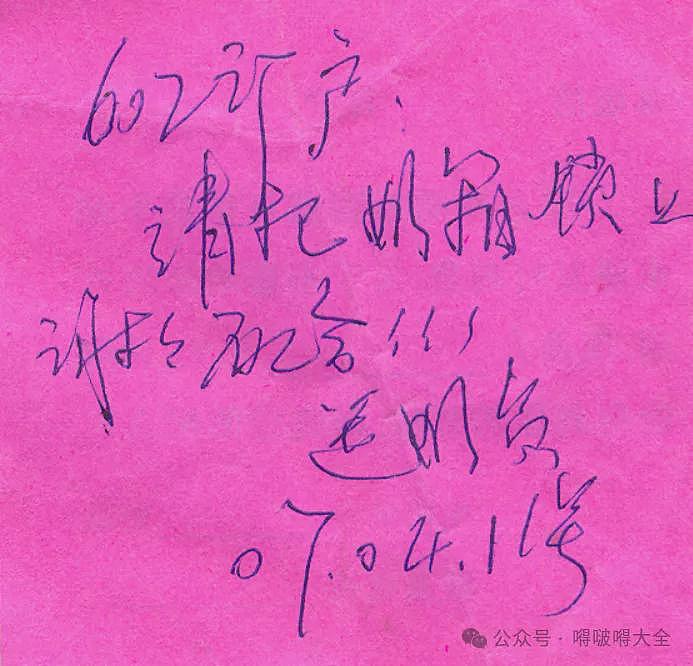 602订户：
请把奶箱锁上
谢谢配合!!!
送奶员
07.04.1号
公众号·嘚啵嘚大全